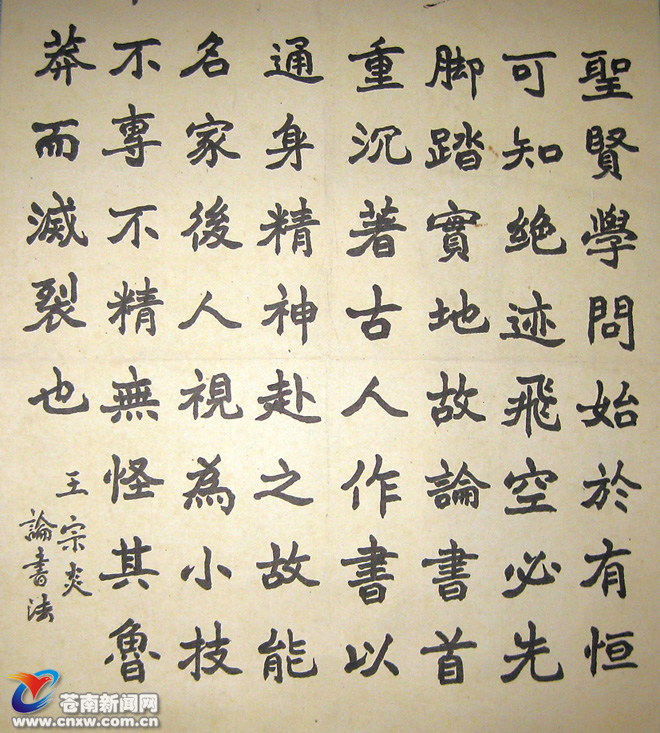 聖賢學問始於有恒
可知絶迹飛空必先
脚踏實地故論書首
重沉著古人作書以
通身精神赴之故能
名家後人視為小技
不專不精無怪其魯
莽而滅裂也
王宗炎
論書法
苍南新闻网
www.cnxw.com.cn